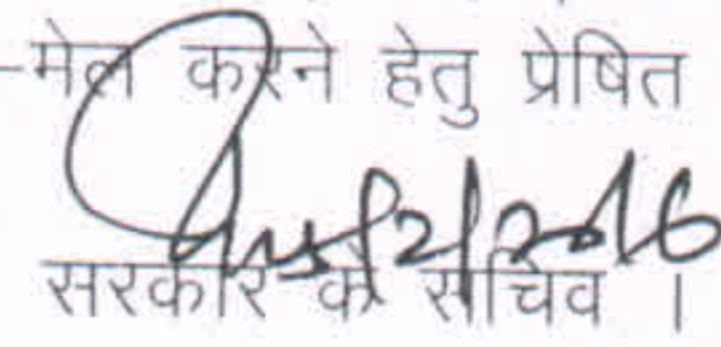 -मेल करने हेतु प्रेषित
सरकार के सचिव ।